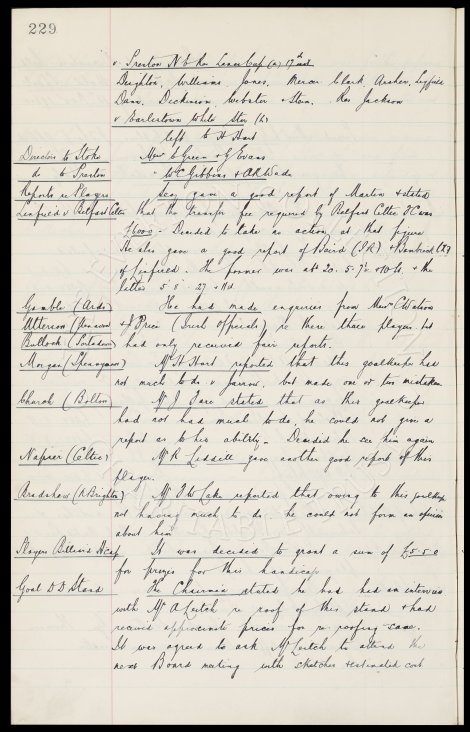 229
v Preston N E Res Lancs Cup (a) 17th inst
Deighton, Williams, Jones, Mercer Clark Archer, Leyfield
Dunn, Dickinson, Webster & Stein. Res Jackson
v Earlestown White Star (h)
left to H Hart
Directors to Stoke Messrs E Green & G Evans
do to Preston " W C Gibbins & A R Wade
Reports re Players. Secy gave a good report of Martin & stated
Linfield v Belfast Celtic that the transfer fee required by Belfast Celtic F C was
£6000 - Decided to take no action at that figure
He also gave a good report of Baird (I.R) & Bambrick (C F)
of Linfield. The former was abt 20. 5.7½ & 10 St, & the
latter 5.8. 27 & 11st
Gamble (Ards) He had made enquiries from Messrs C Watson
Utterson & J Price (Irish Officials) re these three players but
Bullock (Portadown) had only received fair reports.
Morgan (Spennymoor) Mr H Hart reported that this goalkeeper had
not much to do v Jarrow, but made one or two mistakes
Church (Bolton) Mr J stated that as this goalkeeper
had not had much to do, he could not give a
report as to his ability - Decided he see him again
Napier (Celtic) Mr R Liddell gave another good report of this
player.
Bradshaw (N Brighton) Mr T W Lake reported that owing to this goalkeeper
not having much to do he could not form an opinion
about him
Players Billiard Hcap It was decided to grant a sum of £5.5.0
for prizes for this handicap
Goal D D Stand The Chairman stated he had had an interview
with Mr A Leitch re roof of this stand & had
received approximate prices for re-roofing same.
It was agreed to ask Mr Leitch to attend the
next Board meeting with sketches & estimated cost